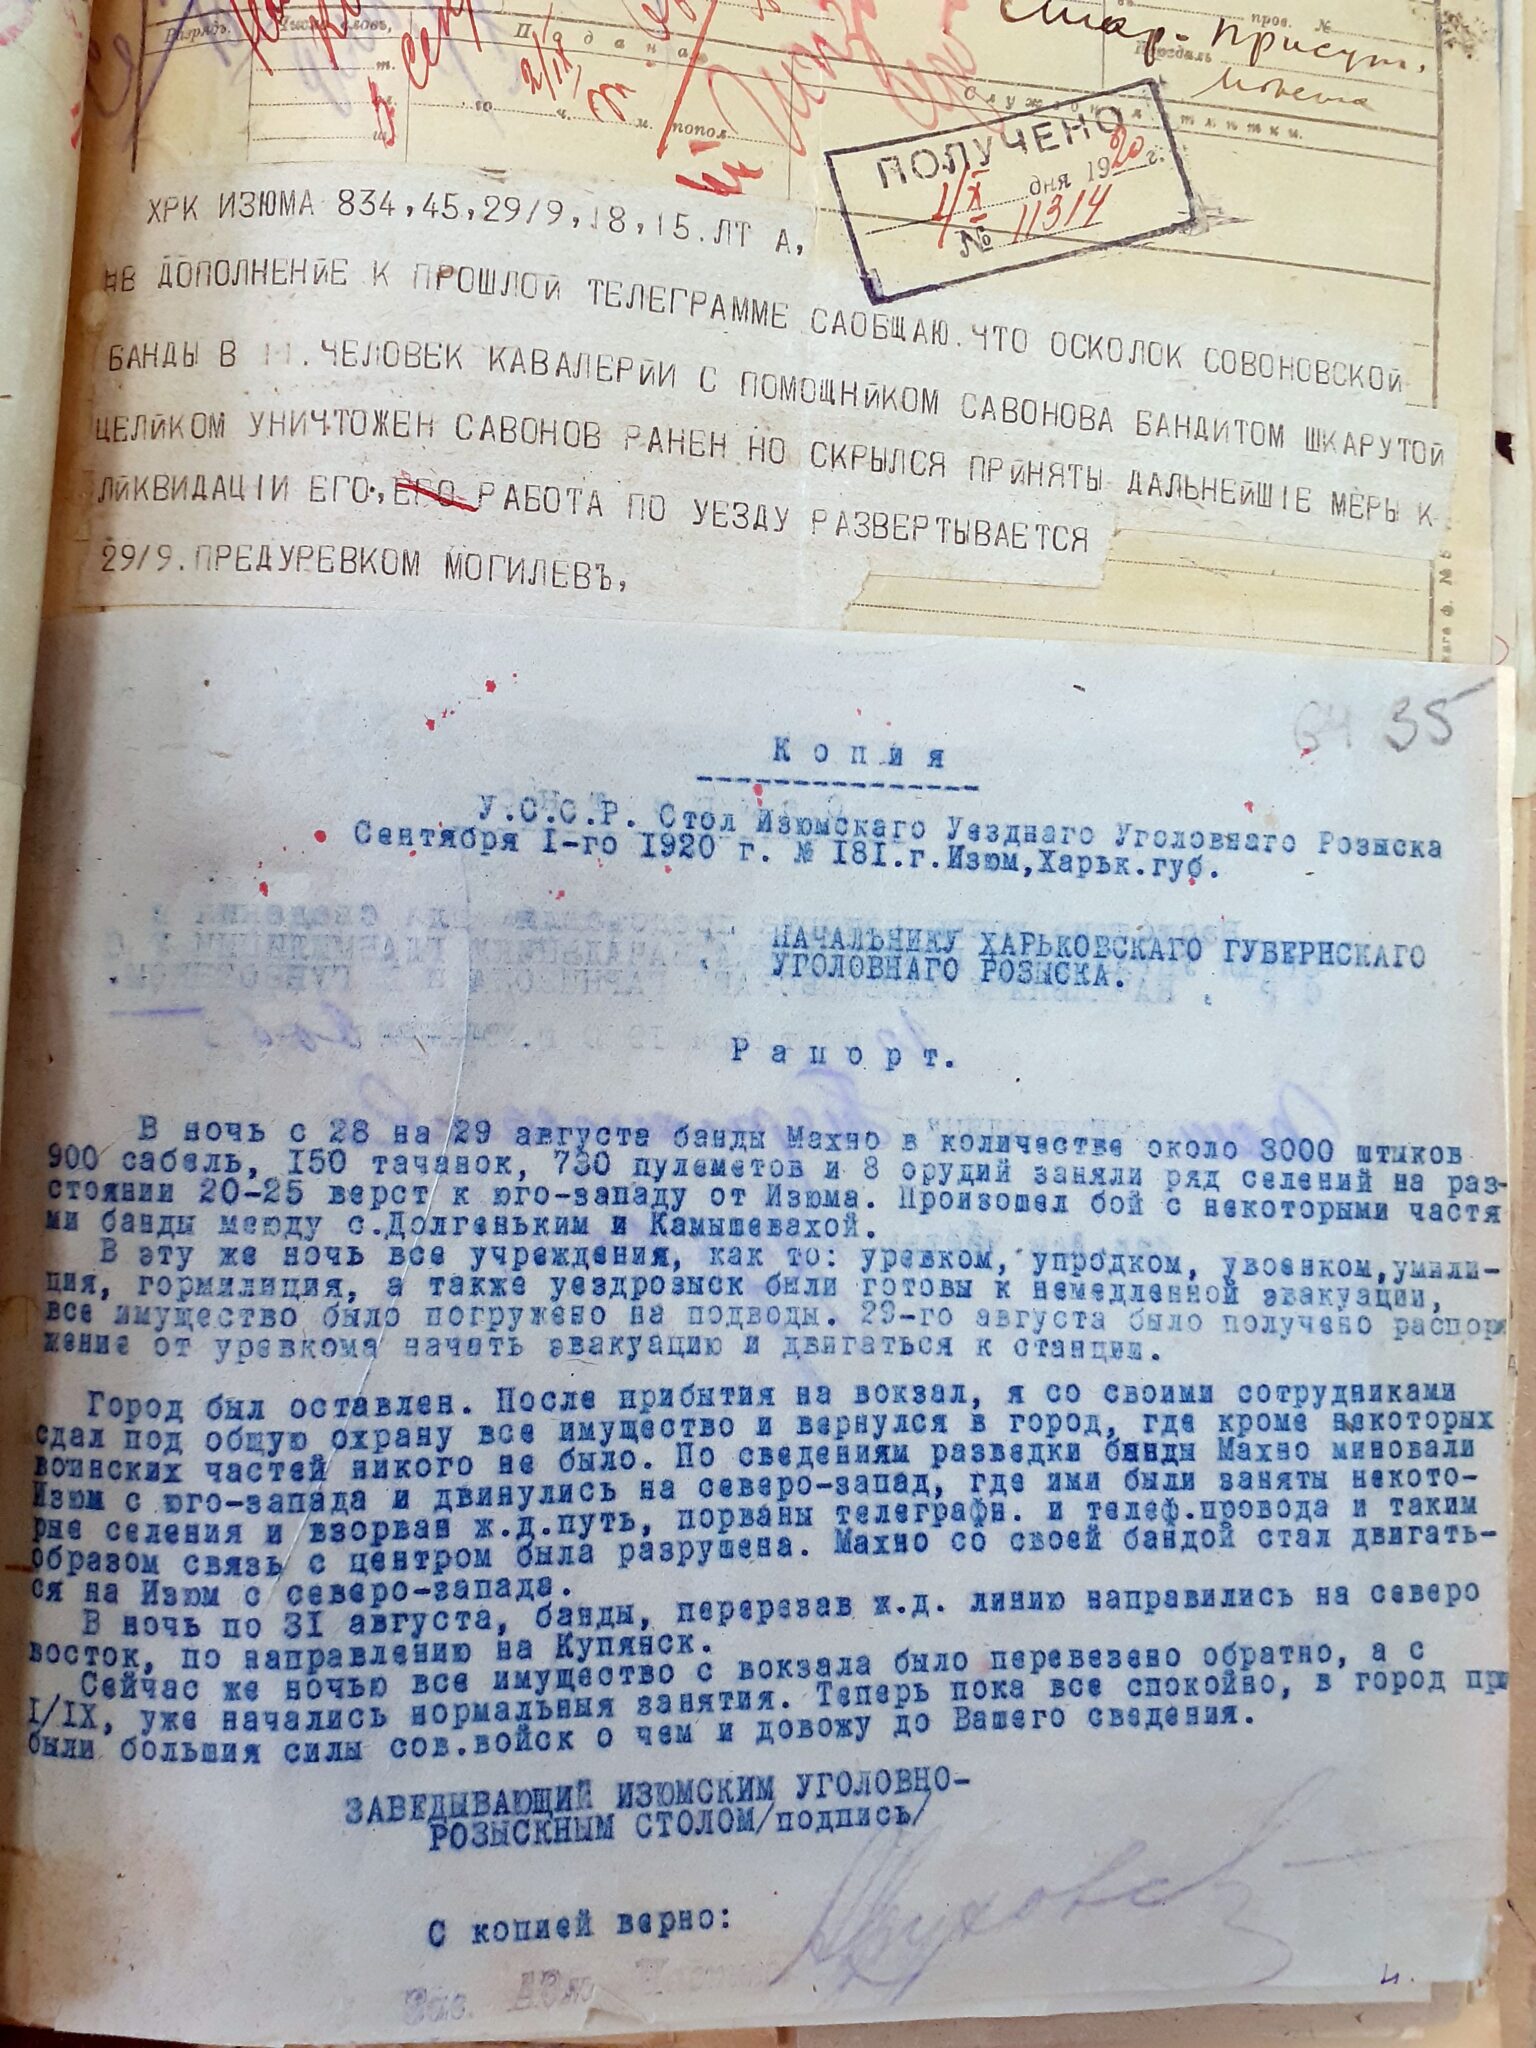 Разрядъ.
Число словъ,
Подана
пров. №
2/IX
го ч. м. попол
Служебныя отмѣтки.
ПОЛУЧЕНО
1/X дня 1920 г.
№ 11314
ХРК ИЗЮМА 834,45,29/9,18,15.ЛТ А,
НВ ДОПОЛНЕНИЕ К ПРОШЛОЙ ТЕЛЕГРАММЕ САОБЩАЮ.ЧТО ОСКОЛОК СОВОНОВСКОЙ
БАНДЫ В 11. ЧЕЛОВЕК КАВАЛЕРЙИ С ПОМОЩНЙКОМ САВОНОВА БАНДИТОМ ШКАРУТОЙ
ЦЕЛЙКОМ УНИЧТОЖЕН САВОНОВ РАНЕН НО СКРЫЛСЯ ПРЙНЯТЫ ДАЛЬНЕЙШIЕ МЕРЫ К
ЛЙКВИДАЦIИ ЕГО., ЕГО РАБОТА ПО УЕЗДУ РАЗВЕРТЫВАЕТСЯ
29/9.ПРЕДУРЕВКОМ МОГИЛЕВЪ,
64 35
К о п и я
У.С.С.Р. Стол Изюмскаго Уезднаго Уголовнаго Розыска
Сентября I-го 1920 г. № 181.г.Изюм,Харьк.губ.
НАЧАЛЬНИКУ ХАРЬКОВСКАГО ГУБЕРНСКАГО
УГОЛОВНАГО РОЗЫСКА.
Р а п о р т.
В ночь с 28 на 29 августа банды Махно в количестве около 3000 штыков
900 сабель, 150 тачанок, 730 пулеметов и 8 орудий заняли ряд селений на раз-
стоянии 20-25 верст к юго-западу от Изюма. Произошел бой с некоторыми частя
ми банды между с.Долгеньким и Камышевахой.
В эту же ночь все учреждения, как то: уревком, упродком, увоенком,умили-
ция, гормилиция, а также уездрозыск были готовы к немедленной эвакуации,
все имущество было погружено на подводы. 29-го августа было получено распоря
жение от уревкома начать эвакуацию и двигаться к станции.
Город был оставлен. После прибытия на вокзал, я со своими сотрудниками
сдал под общую охрану все имущество и вернулся в город, где кроме некоторых
воинских частей никого не было. По сведениям разведки банды Махно миновали
Изюм с юго-запада и двинулись на северо-запад, где ими были заняты некото-
рые селения и взорван ж.д.путь, порваны телеграфн. и телеф.провода и таким
образом связь с центром была разрушена. Махно со своей бандой стал двигать-
ся на Изюм с северо-запада.
В ночь по 31 августа, банды, перерезав ж.д. линию направились на северо
восток, по направлению на Купянск.
Сейчас же ночью все имущество с вокзала было перевезено обратно, а с
I/IX, уже начались нормальныя занятия. Теперь пока все спокойно, в город при
были большия силы сов.войск о чем и довожу до Вашего сведения.
ЗАВЕДЫВАЮЩИЙ ИЗЮМСКИМ УГОЛОВНО-
РОЗЫСКНЫМ СТОЛОМ/подпись/
С копией верно: